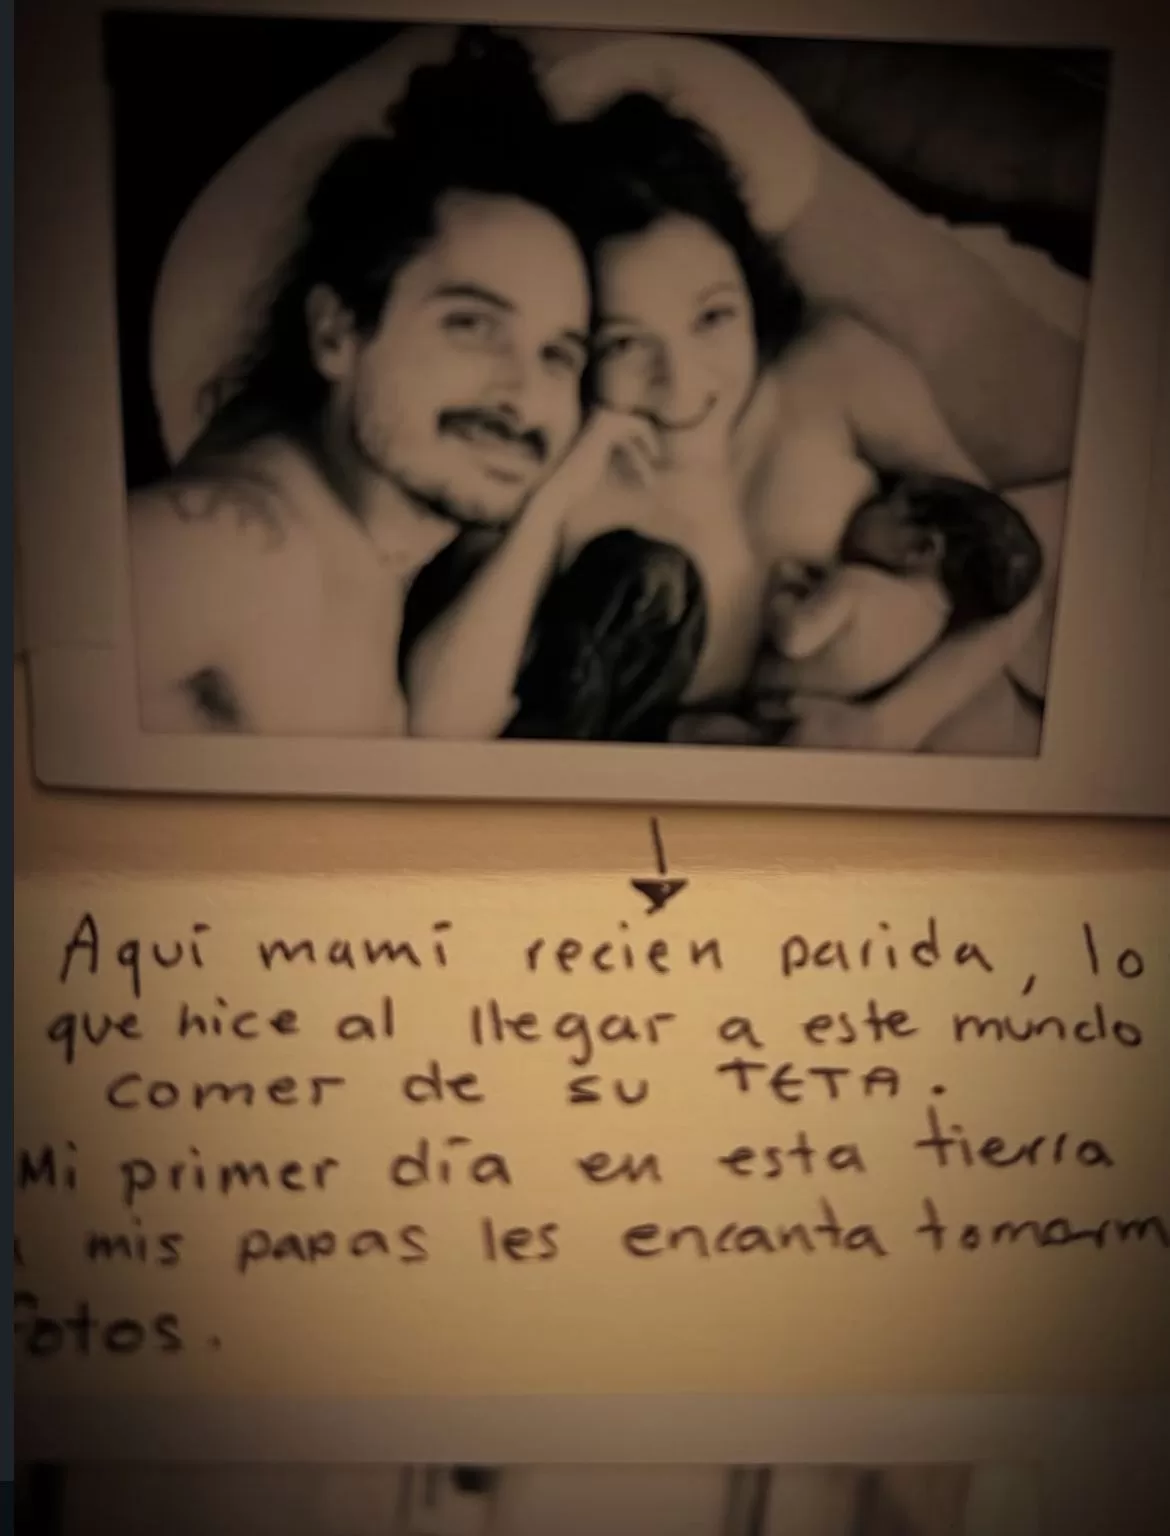 Aquí mamí recien parida, lo
que hice al llegar a este mundo
comer de su TETA.
Mi primer día en esta tierra
a mis papas les encanta tomarm
fotos.